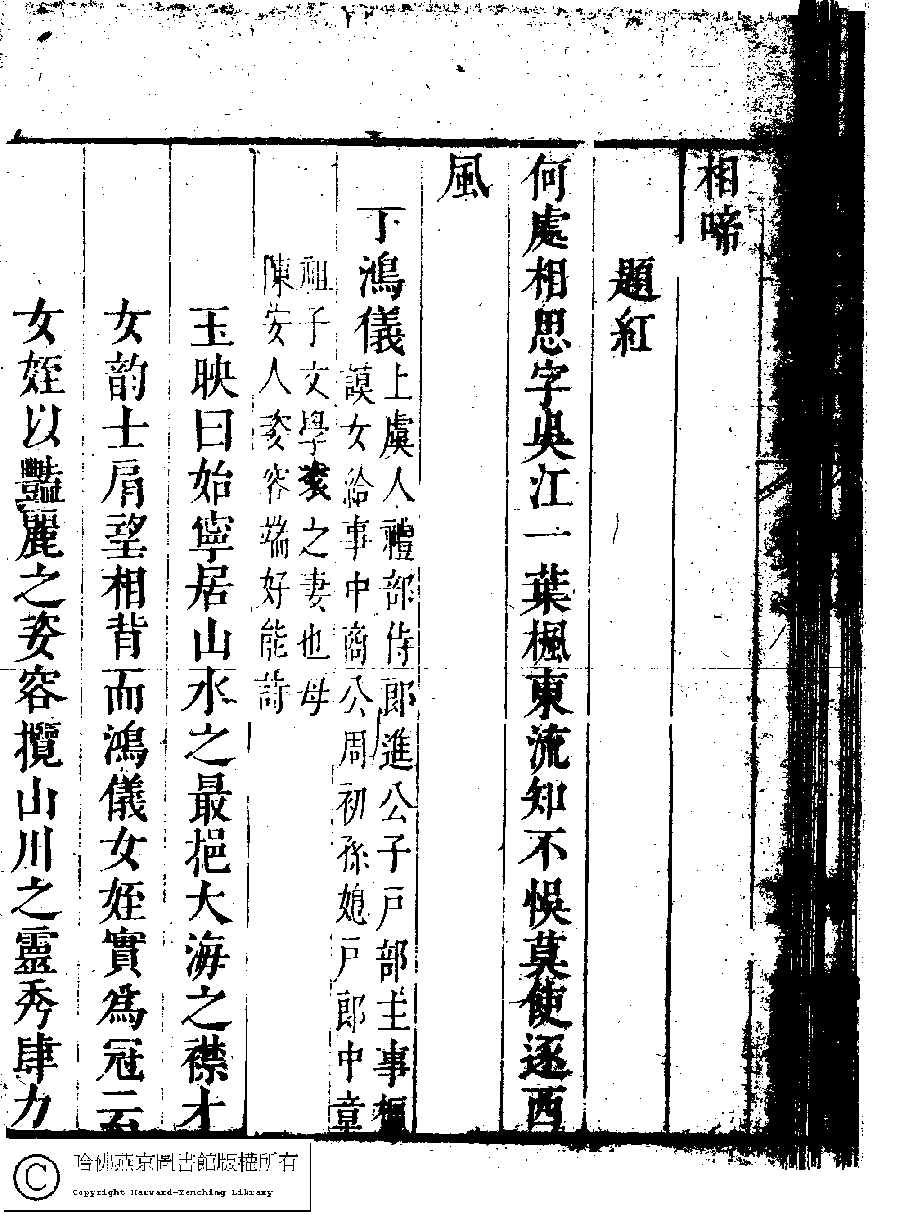 相啼
題紅
何處相思字吳江一葉楓東流知不悞莫使逐西
風
丁鴻儀
上虞人禮部侍郎進公子戸部主事
謨女給事中商公周初孫媳戸郎中章
祖子文學袠之妻也母
陳安人姿容端好能詩
玉映曰始寧居山水之最挹大海之襟才
女韵士肩望相背而鴻儀女姪實為冠云
女姪以豔麗之姿容攬山川之靈秀肆力
哈佛燕京圖書館版權所有
Copyright Harvard-Yenching Library